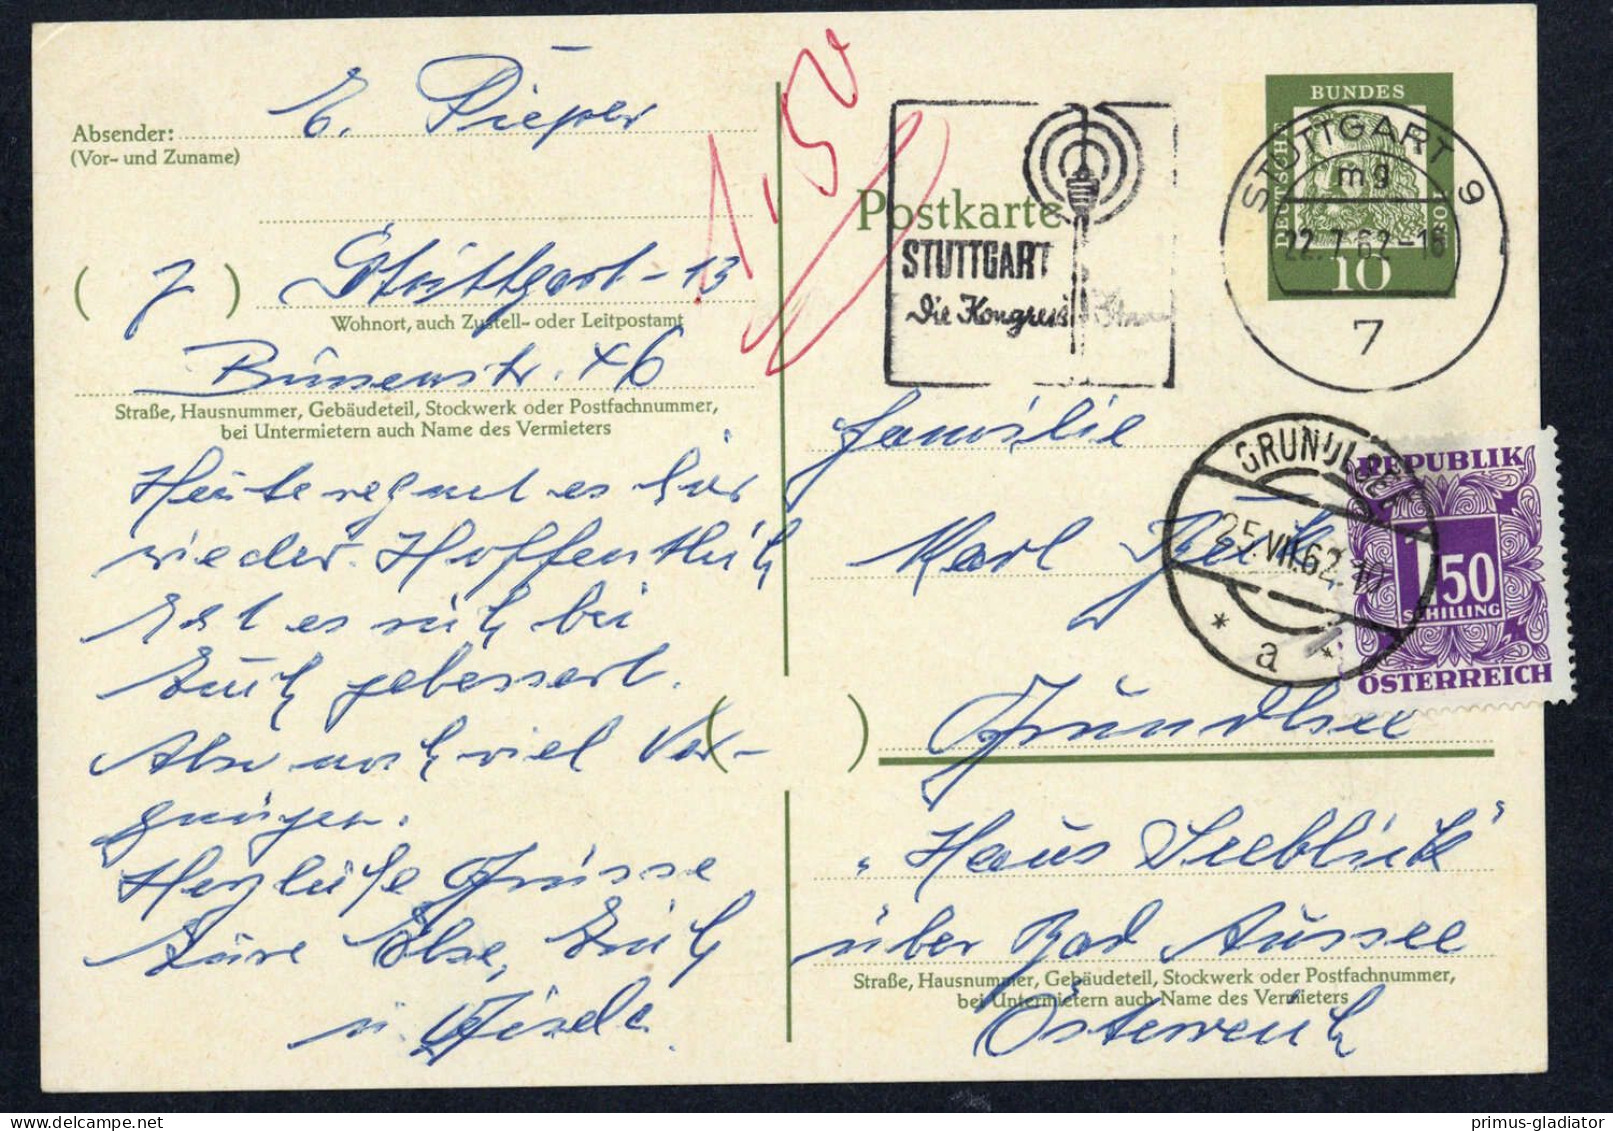 Absender:
E. Piepler
(Vor- und Zuname)
( 7 ) Stuttgart-13
Wohnort, auch Zustell- oder Leitpostamt
46
Straße, Hausnummer, Gebäudeteil, Stockwerk oder Postfachnummer,
bei Untermietern auch Name des Vermieters
Heute regnet es hier
wieder. Hoffentlich
hat es sich bei
Euch gebessert.
Also noch viel Ver-
gnügen.
Herzliche Grüsse
Eure Else, Erich
u. Gisela
1,50
Postkarte
STUTTGART
Die Kongreß
BUNDES
DEUTSCHE
POST
10
STUTTGART 9
mg
22.7.62-16
7
Familie
Karl
GRUNDLSEE
25.VII.62
* a *
REPUBLIK
1.50
SCHILLING
ÖSTERREICH
( ) Grundlsee
"Haus Seeblick"
über Bad Aussee
Straße, Hausnummer, Gebäudeteil, Stockwerk oder Postfachnummer,
bei Untermietern auch Name des Vermieters
Österreich
primus-gladiator